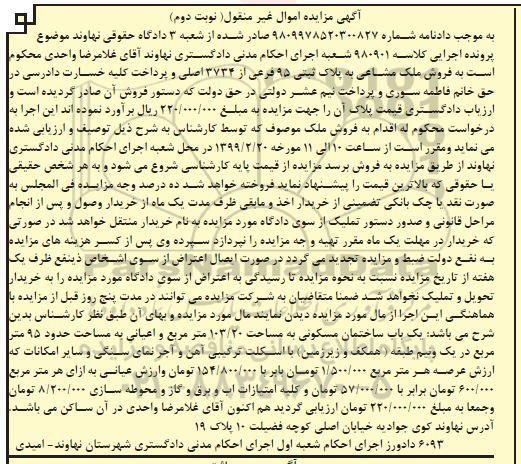 آگهی مزایده اموال غیر منقول( نوبت دوم)
به موجب دادنامه شماره ۹۸۰۹۹۷۸۵۲۰۳۰۰۸۲۷ صادر شده از شعبه ۳ دادگاه حقوقی نهاوند موضوع
پرونده اجرایی کلاسه ۹۸۰۹۰۱ شعبه اجرای احکام مدنی دادگستری نهاوند آقای غلامرضا واحدی محکوم
است به فروش ملک مشاعی به پلاک ثبتی ۹۵ فرعی از ۳۷۳۴ اصلی و پرداخت کلیه خسارت دادرسی در
حق خانم فاطمه سوری و پرداخت نیم عشر دولتی در حق دولت که دستور فروش آن صادر گردیده است و
ارزیاب دادگستری قیمت پلاک آن را جهت مزایده به مبلغ ۲۲۰/۰۰۰/۰۰۰ ریال برآورد نموده اند این اجرا به
درخواست محکوم له اقدام به فروش ملک موصوف که توسط کارشناس به شرح ذیل توصیف و ارزیابی شده
می نماید ومقرر است از ساعت ۱۰ الی ۱۱ مورخه ۱۳۹۹/۲/۲۰ در محل شعبه اجرای احکام مدنی دادگستری
نهاوند از طریق مزایده به فروش برسد مزایده از قیمت پایه کارشناسی شروع می شود و به هر شخص حقیقی
یا حقوقی که بالاترین قیمت را پیشنهاد نماید فروخته خواهد شد ده درصد وجه مزایده فی المجلس به
صورت نقد یا چک بانکی تضمینی از خریدار اخذ و مابقی ظرف مدت یک ماه از خریدار وصول و پس از انجام
مراحل قانونی و صدور دستور تملیک از سوی دادگاه مورد مزایده به نام خریدار منتقل خواهد شد در صورتی
که خریدار در مهلت یک ماه مقرر تهیه و جه مزایده را نپردازد سپرده وی پس از کسر هزینه های مزایده
به نفع دولت ضبط و مزایده تجدید می گردد در صورت ایصال اعتراض از سوی اشخاص ذینفع ظرف یک
هفته از تاریخ مزایده نسبت به نحوه مزایده تا رسیدگی به اعتراض از سوی دادگاه مورد مزایده را به خریدار
تحویل و تملیک نخواهد شد ضمنا متقاضیان به شرکت مزایده می توانند در مدت پنج روز قبل از مزایده با
هماهنگی این اجرا از مال مورد مزایده دیدن نمایند مال مورد مزایده و بهای آن طبق نظر کارشناس بدین
شرح می باشد: یک باب ساختمان مسکونی به مساحت ۱۰۳/۲۰ متر مربع و اعیانی به مساحت حدود ۹۵ متر
مربع در یک ونیم طبقه ( همکف و زیرزمین) با اسکلت ترکیبی آهن و آجر نمای سنگی و سایر امکانات که
ارزش عرصه هر متر مربع ۱/۵۰۰/۰۰۰ تومان برابر با ۱۵۴/۸۰۰/۰۰۰ تومان وارزش عیانی به ازای هر متر مربع
۶۰۰/۰۰۰ تومان برابر با ۵۷/۰۰۰/۰۰۰ تومان و کلیه امتیازات اب و برق و گاز و محوطه سازی ۸/۲۰۰/۰۰۰ تومان
وجمعا به مبلغ ۲۲۰/۰۰۰/۰۰۰ تومان ارزیابی گردید هم اکنون آقای غلامرضا واحدی در آن ساکن می باشد.
آدرس نهاوند کوی جوادیه خیابان اصلی کوچه فضیلت ۱۰ پلاک ۱۹
۶۰۹۳ دادورز اجرای احکام شعبه اول اجرای احکام مدنی دادگستری شهرستان نهاوند- امیدی